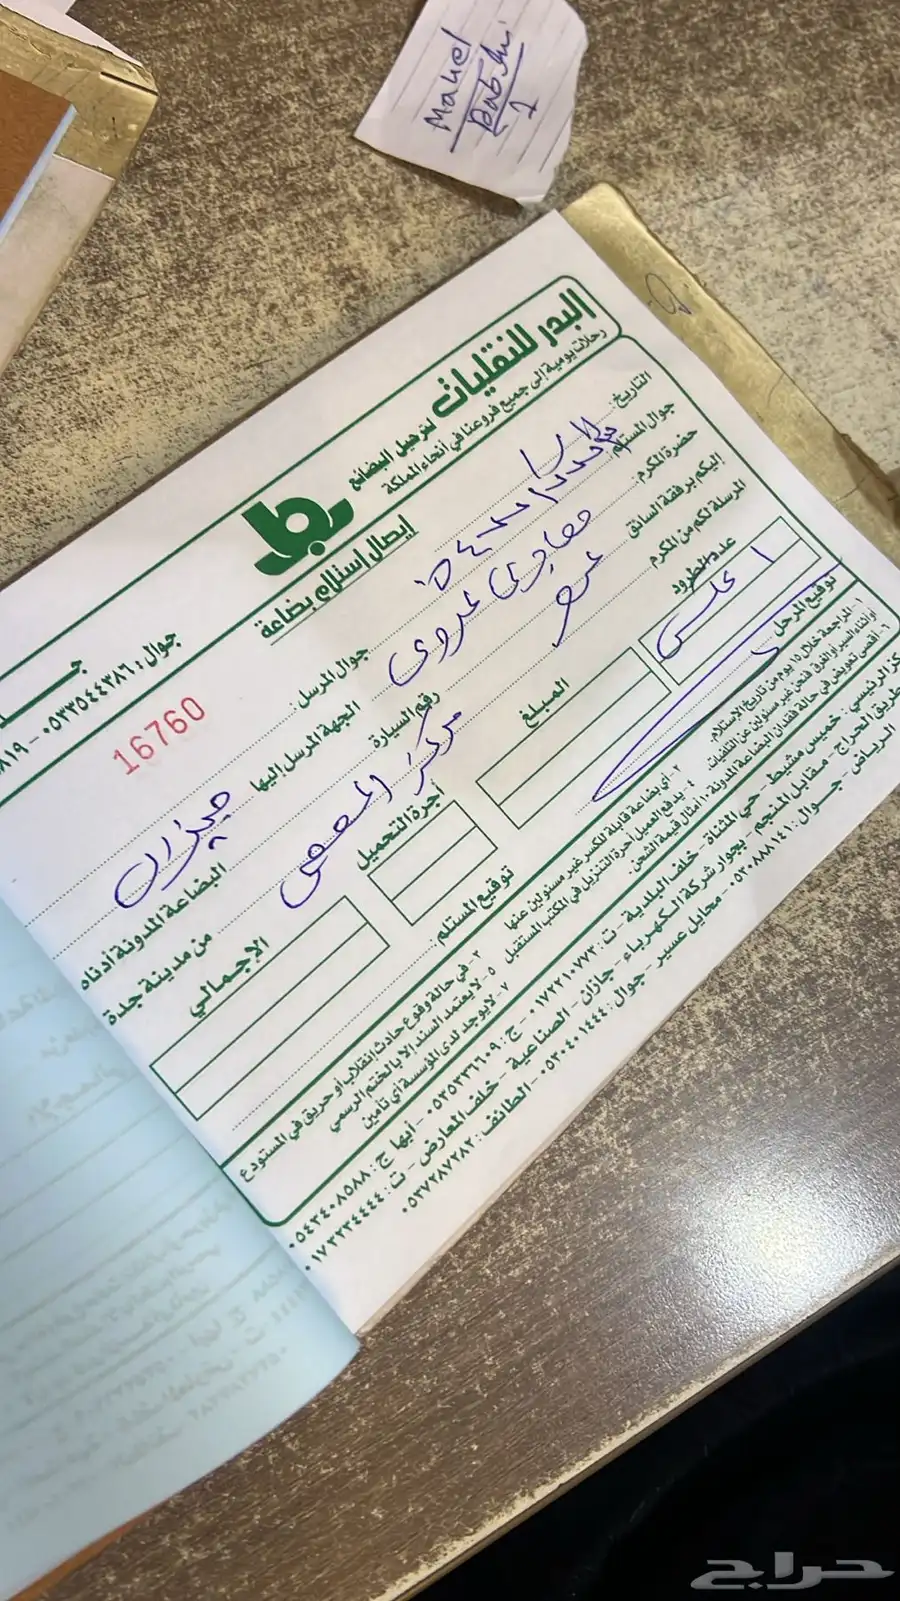 Mahel
البدر للنقليات
لترحيل البضائع
رحلات يومية إلى جميع فروعنا في أنحاء المملكة
جوال : ٠٥٣٣٥٤٤٣٨٦
إيصال إستلام بضاعة
16760
التاريخ :
جوال المستلم :
جوال المرسل :
حضرة المكرم :
الجهة المرسل إليها
جيزان
إليكم برفقة السائق
عمر
رقم السيارة
البضاعة المدونة أدناه
المرسلة لكم من المكرم
مركز
من مدينة جدة
عدد الطرود
المبلغ
أجرة التحميل
الإجمالي
١
توقيع المرحل
توقيع المستلم :
١- المراجعة خلال ١٥ يوم من تاريخ الإستلام.
٢- أي بضاعة قابلة للكسر غير مسئولين عنها
٣- في حالة وقوع حادث إنقلاب أو حريق في المستودع
أو أثناء السير أو الغرق فنحن غير مسئولين عن التلفيات.
٤- يدفع العميل أجرة التنزيل في المكتب المستقبل
٥- لا يعتمد السند إلا بالختم الرسمي
٦- أقصى تعويض في حالة فقدان البضاعة المدونة ١٠ أمثال قيمة الشحن.
٧- لا يوجد لدى المؤسسة أي تأمين
الرئيسي : خميس مشيط - حي المثناة - خلف البلدية - ت : ٠١٧٢٢١٠٧٧٣ - ج : ٠٥٣٥٣٣٦٦٠٩ - أبها ج : ٠٥٤٣٤٠٨٥٨٨
طريق الحراج - مقابل المنجم - بجوار شركة الكهرباء - جازان - الصناعية - خلف المعارض - ت : ٠١٧٣٣٣٤٤٤٤
الرياض - جوال : ٠٥٣٠٨٨٨١٤١ - محايل عسير - جوال : ٠٥٣٠٤٠١٤٤٤ - الطائف : ٠٥٣٧٢٨٧٢٨٢
حراج